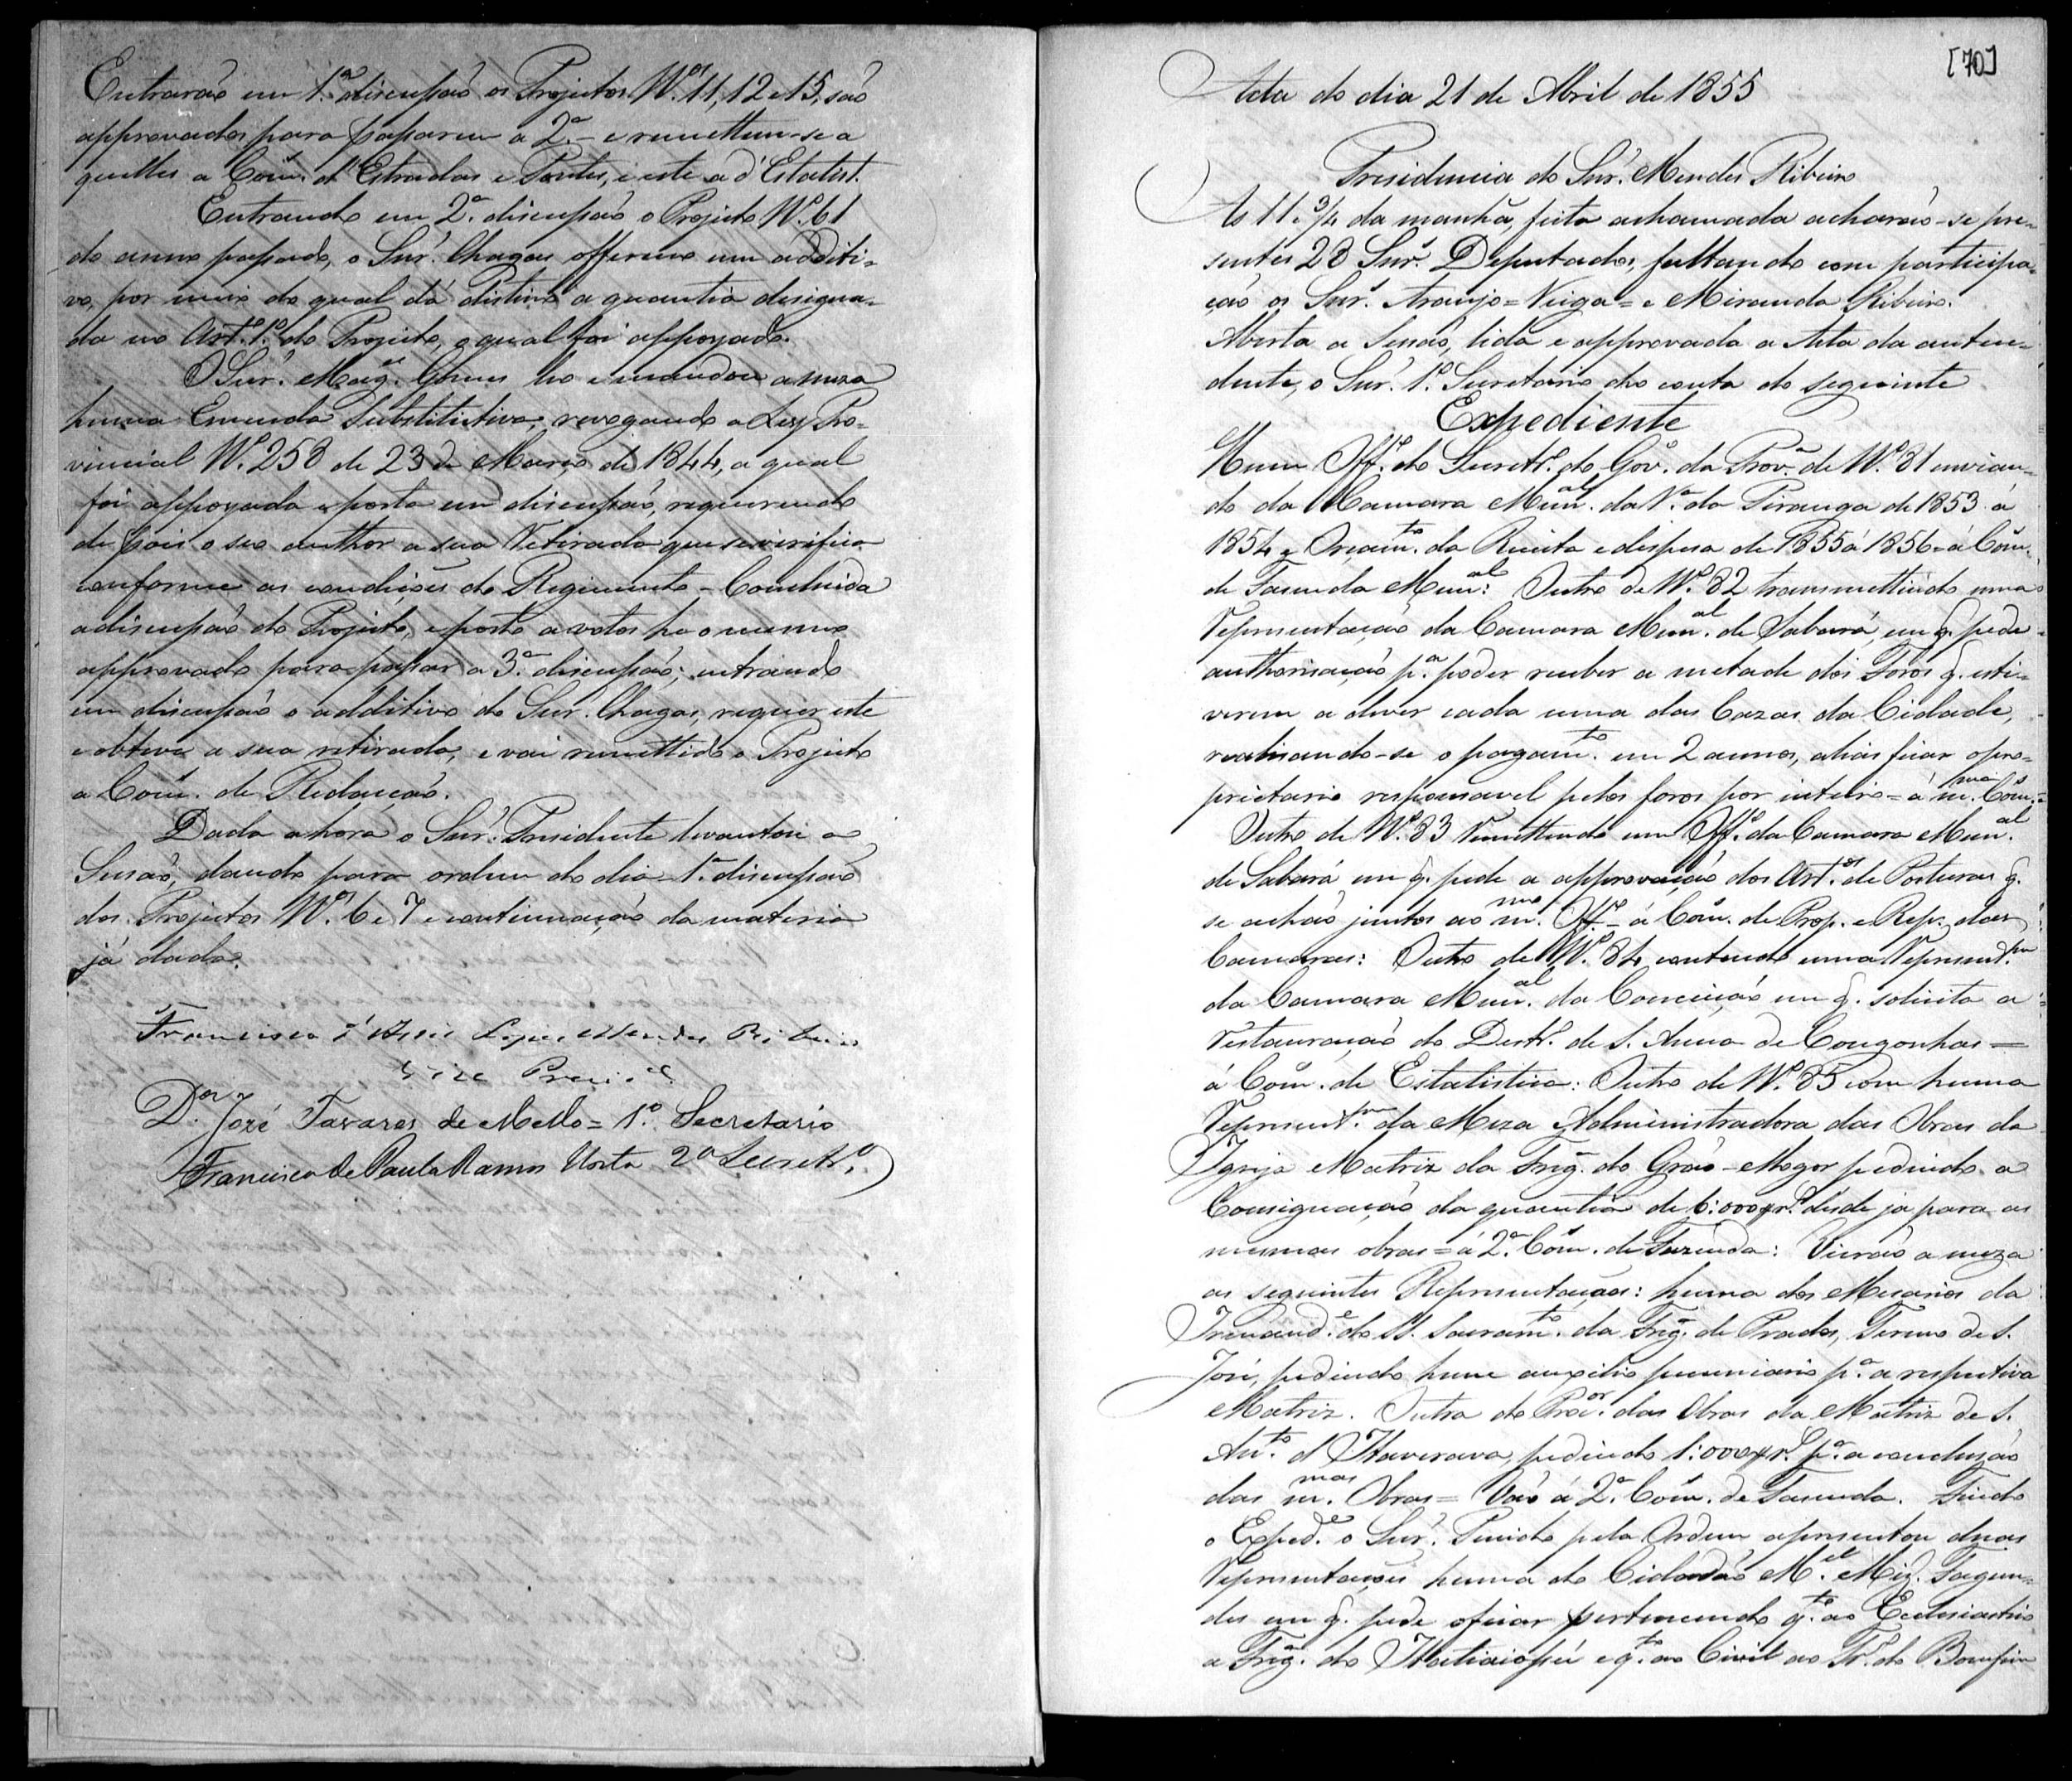 Entrarão em 1.ª discussão os Projectos N.os 11, 12 e 15, são
approvados para passarem a 2.ª - e remettem-se a
quelles a Com. d'Estradas e Pontes, e este a d'Estatist.
Entrando em 2.ª discussão o Projecto N.º 61
do anno passado, o Snr. Chagas offerece um additi=
vo, por meio do qual dá destino a quantia designa=
da no Art.º 1.º do Projecto, o qual foi appoyado.
O Snr. Mag.es Gomes leo e mandou a meza
huma Emenda Substitutiva, revogando a Ley Pro=
vincial N.º 258 de 23 de Março de 1844, a qual
foi appoyada e posta em discussão, requerendo
depois o seo author a sua retirada que se verifica
conforme as condições do Regimento - Concluida
a discussão do Projecto, e posto a votos he o mesmo
approvado para passar a 3.ª discussão; entrando
em discussão o additivo do Snr. Chagas, requer este
e obteve a sua retirada, e vai remettido o Projecto
a Com. de Redacção.
Dada a hora o Snr. Presidente levantou a
Sessão, dando para ordem do dia - 1.ª discussão
dos Projectos N.os 6 e 7 e continuação da materia
já dada.
Francisco d'Assis Lopes Mendes Ribeiro
Vice Presid.e
D.or José Tavares de Mello = 1.º Secretario
Francisco de Paula Ramos Horta 2º Secretr.º
[70]
Acta do dia 21 de Abril de 1855
Presidencia do Snr. Mendes Ribeiro
As 11 e 3/4 da manhã, feita a chamada acharão-se pre=
sentes 28 Snr.s Deputados, faltando com participa=
ção os Snr.s Araujo = Veiga = e Miranda Ribeiro.
Aberta a Sessão, lida e approvada a Acta da antece=
dente, o Snr. 1.º Secretario deo conta do seguinte
Expediente
Hum Off.º do Secretr.º do Gov. da Prov.ª de N.º 81 envian=
do da Camara Mun.al da V.ª do Piranga de 1853 á
1854 e Orçam.to da Receita e despesa de 1855 á 1856 = á Com.
de Fasenda Mun.al: Outro de N.º 82 transmettindo uma
Representação da Camara Mun.al de Sabará, em q. pede
authorisação p.ª poder receber a metade dos Foros q. esti=
verem a dever cada uma das Cazas da Cidade,
realisando-se o pagam.to em 2 annos, alias ficar o pro=
prietario responsavel pelos foros por inteiro = á m.ma Com. =
Outro de N.º 83 Remettendo um Off.º da Camara Mun.al
de Sabará em q. pede a approvação dos Art.os de Posturas q.
se achão juntos ao m.mo Off.º - á Com. de Prop. e Rep. das
Camaras: Outro de N.º 84 contendo uma Represent.am
da Camara Mun.al da Conceição em q. solicita a
restauração do Destr.º de S. Anna de Congonhas =
á Com. de Estatistica: Outro de N.º 85 com huma
Represent.am da Meza Administradora das Obras da
Igreja Matriz da Freg. do Grão-Mogor pedindo a
Consignação da quantia de 6:000$rs. desde ja para as
mesmas obras = á 2.ª Com. de Fazenda: Vierão a meza
as seguintes Representações: huma dos Mesarios da
Irmand.e do SS. Sacram.to da Freg. de Prados, Termo de S.
José, pedindo hum auxilio pecuniario p.ª a respectiva
Matriz. Outra do Proc.or das Obras da Matriz de S.
Ant.º d'Itaverava, pedindo 1:000$rs. p.ª a conclusão
das m.mas Obras = Vão á 2.ª Com. de Fasenda. Findo
o Exped.e o Snr. Penido pela Ordem apresentou duas
Representações huma do Cidadão M.el Mig. Fagun=
des em q. pede o ficar pertencendo q.to ao Ecclesiastico
a Freg. do Itatiaiossú e q.to ao Civil ao Tr.º do Bomfim